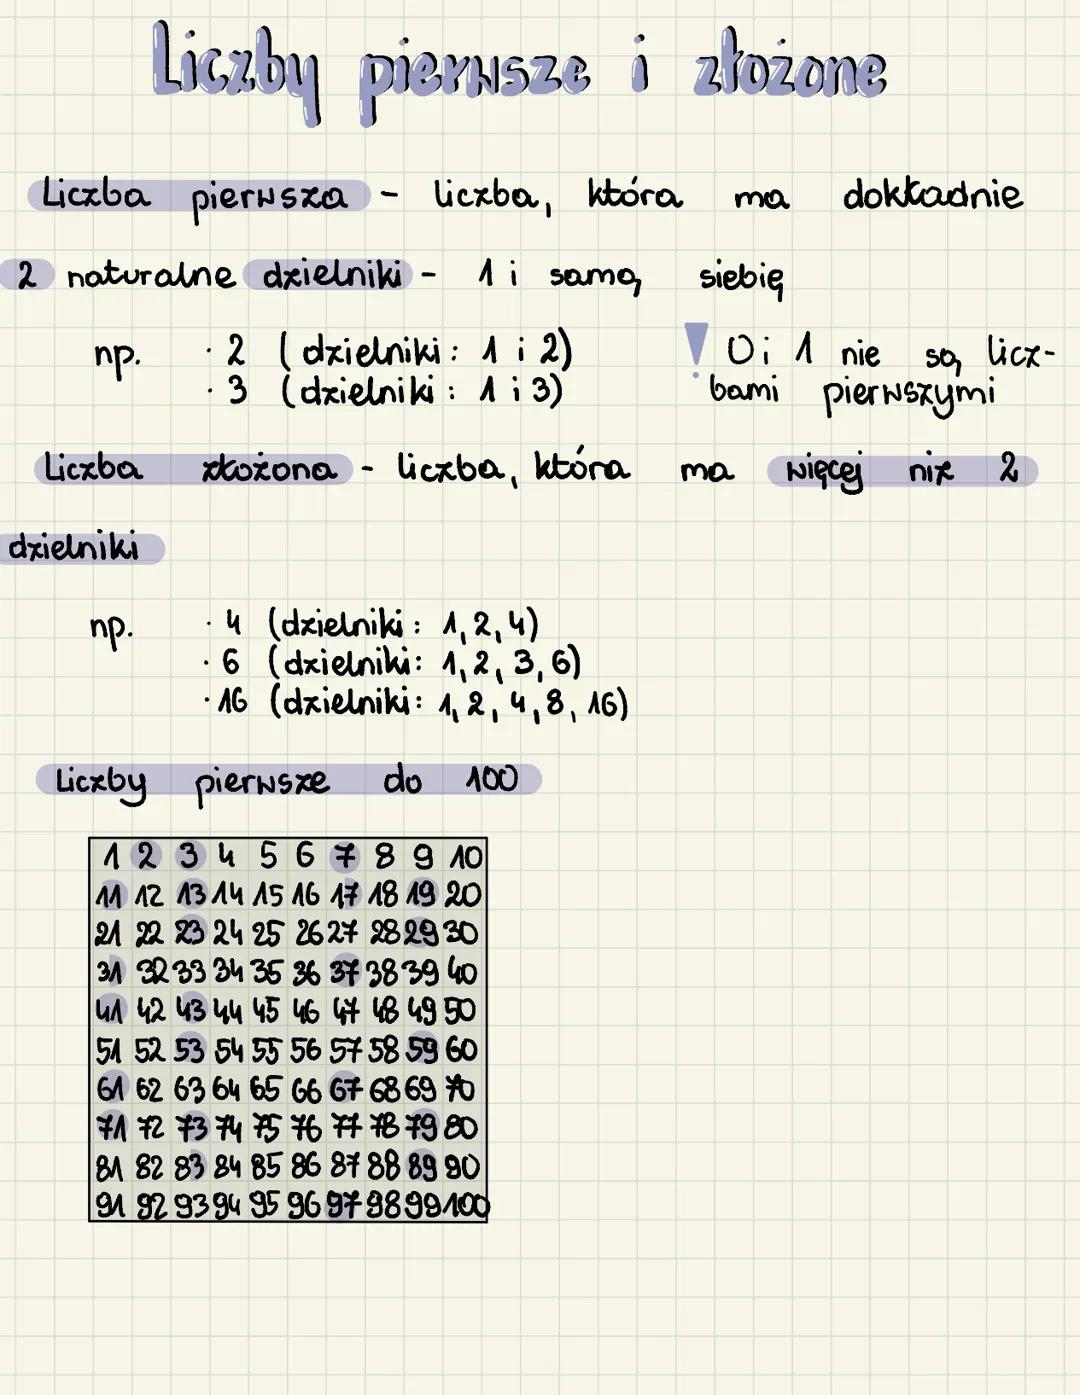 Liczby pierwsze i złożone
Liczba pierwsza - liczba, która ma dokładnie
2 naturalne dzielniki - 1 i samą siebię
np. · 2 (dzielniki: 1 i 2)
· 3 (dzielniki: 1 i 3)
! 0 i 1 nie są licz-
bami pierwszymi
Liczba złożona - liczba, która ma więcej niż 2
dzielniki
np. · 4 (dzielniki: 1, 2, 4)
· 6 (dzielniki: 1, 2, 3, 6)
· 16 (dzielniki: 1, 2, 4, 8, 16)
Liczby pierwsze do 100
1 2 3 4 5 6 7 8 9 10
11 12 13 14 15 16 17 18 19 20
21 22 23 24 25 26 27 28 29 30
31 32 33 34 35 36 37 38 39 40
41 42 43 44 45 46 47 48 49 50
51 52 53 54 55 56 57 58 59 60
61 62 63 64 65 66 67 68 69 70
71 72 73 74 75 76 77 78 79 80
81 82 83 84 85 86 87 88 89 90
91 92 93 94 95 96 97 98 99 100